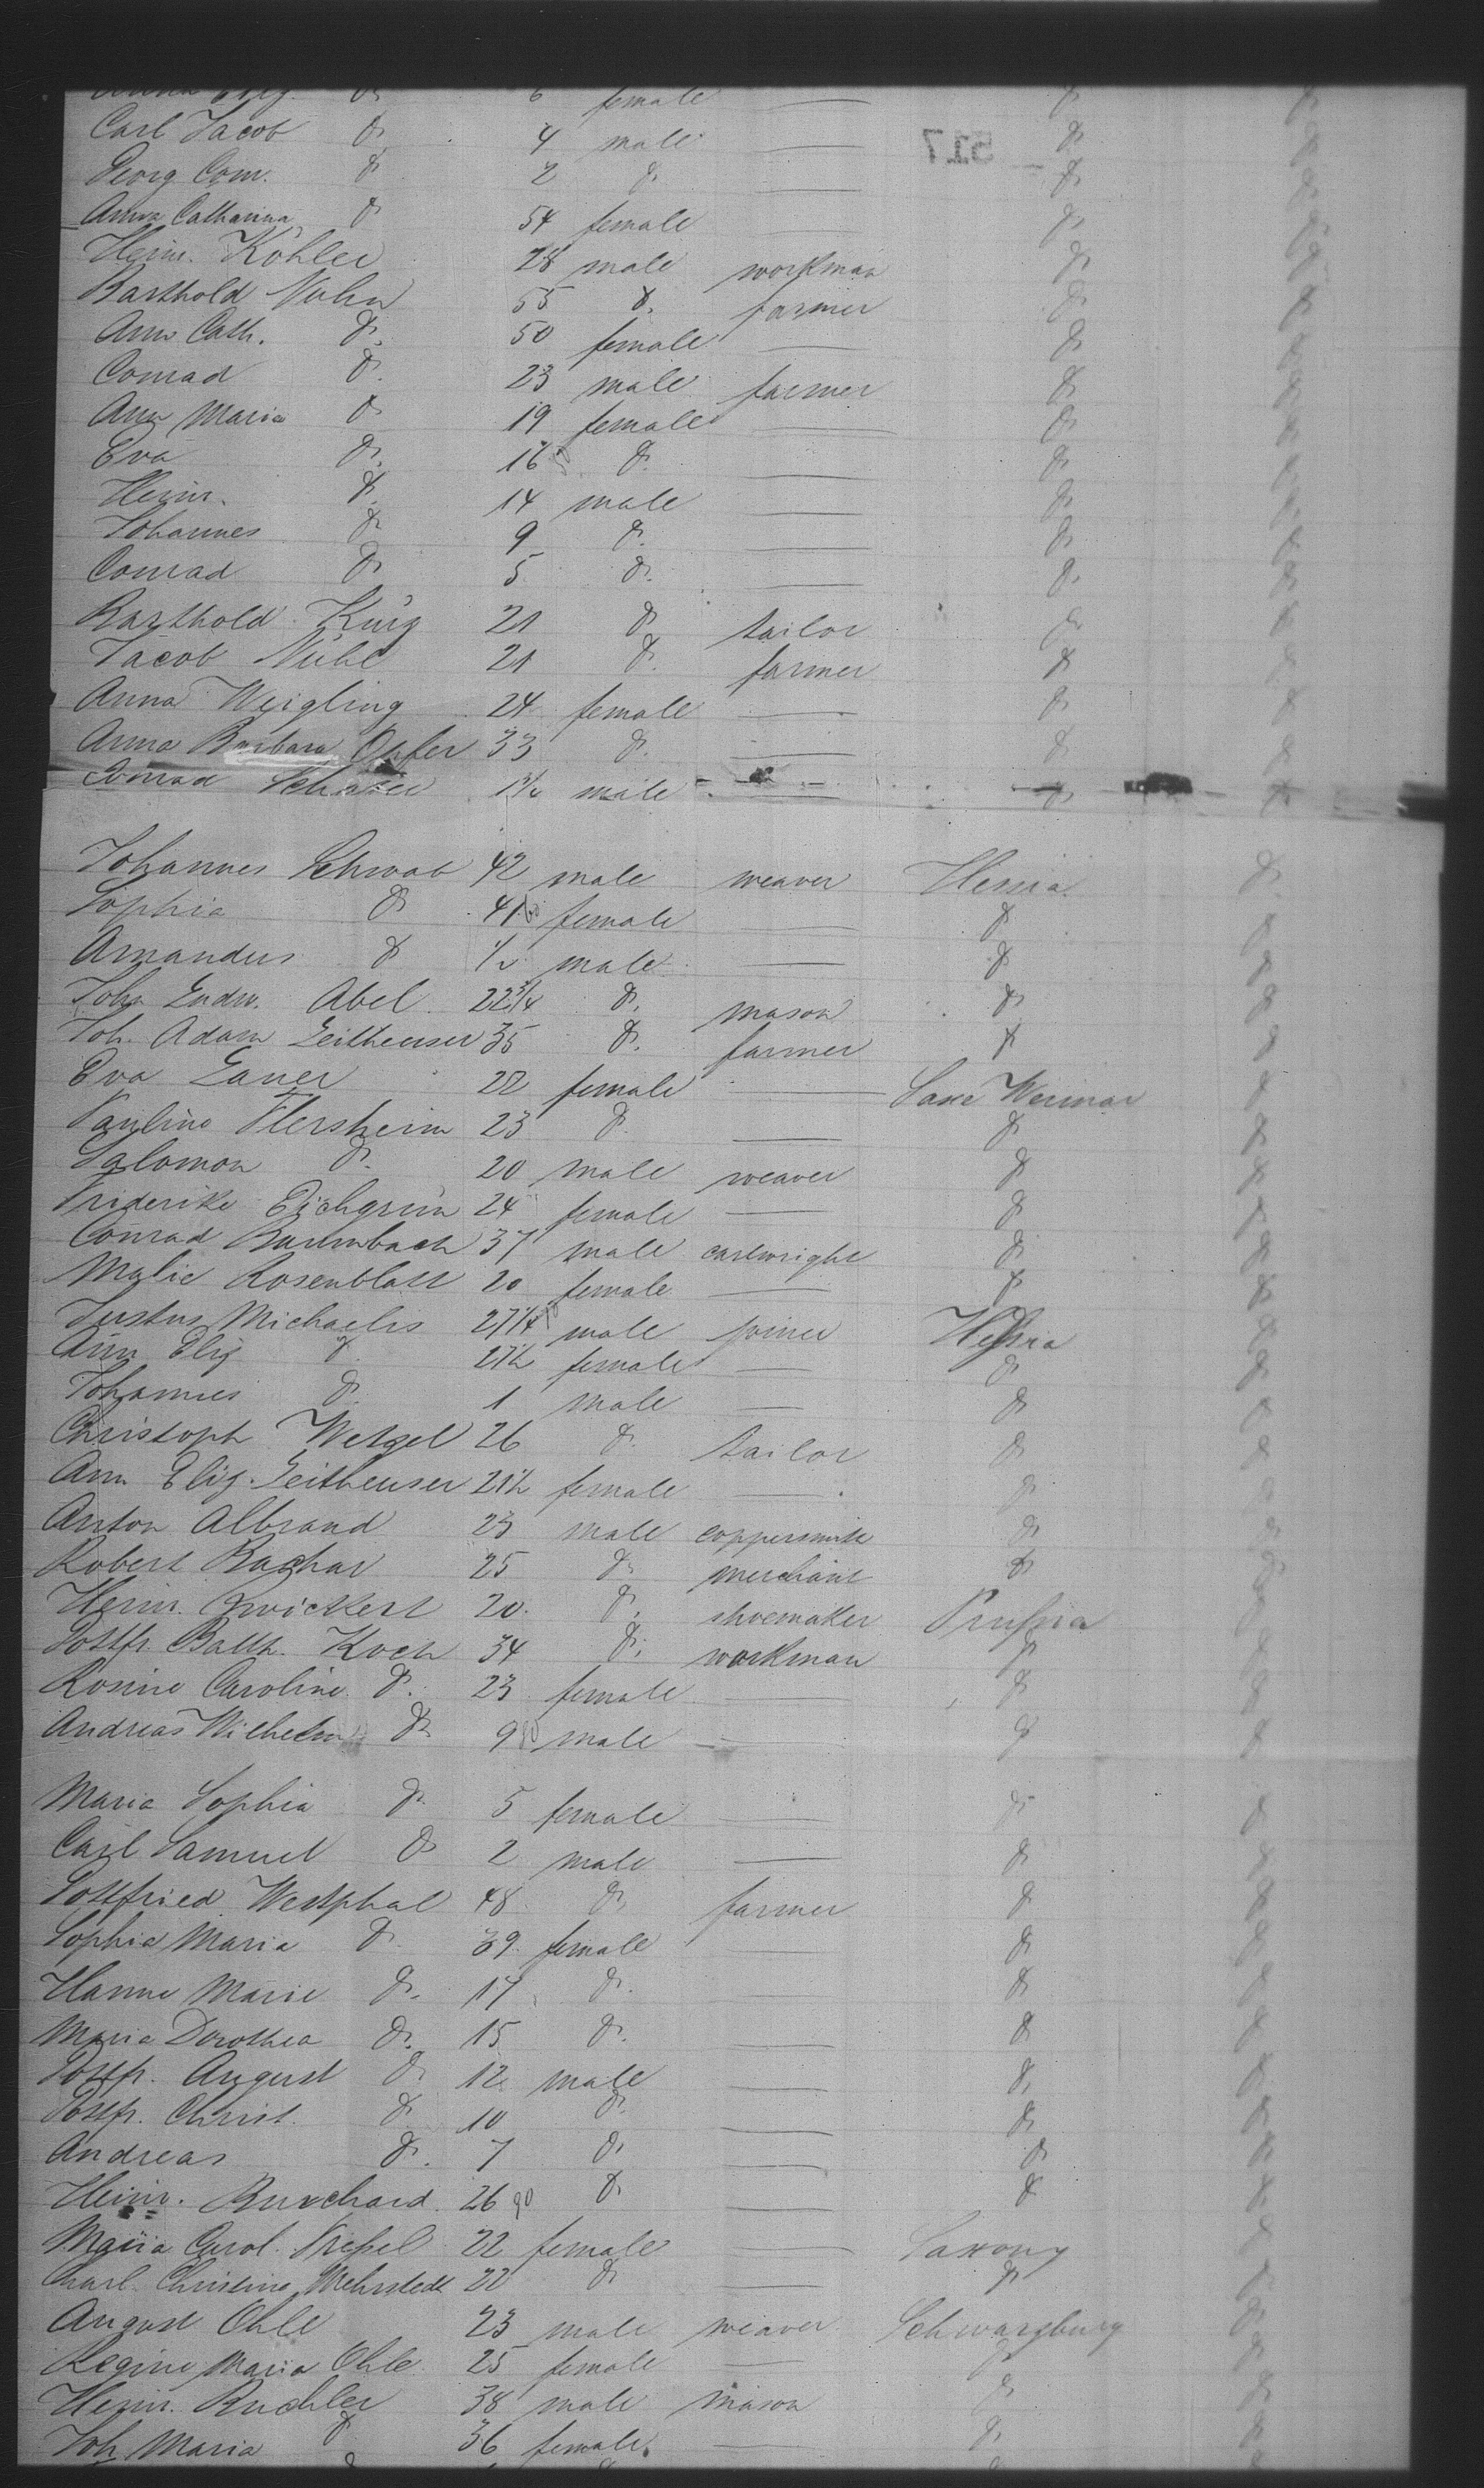 Anna Eliz. do 6 female — do do
Carl Jacob do 4 male — do do
517
Georg Conr. do 2 do — do do
Anna Catharina do 54 female — do do
Heinr. Köhler 28 male workman do do
Barthold Nuhn 55 do farmer do do
Ann Cath. do 50 female — do do
Conrad do 23 male farmer do do
Ann Maria do 19 female — do do
Eva do 16 do — do do
Heinr. do 14 male — do do
Johannes do 9 do — do do
Conrad do 5 do — do do
Barthold Kurz 21 do tailor do do
Jacob Nuhn 21 do farmer do do
Anna Weigling 24 female — do do
Anna Barbara Opfer 33 do — do do
Conrad 1½ male — do do
Johannes Schwab 42 male weaver Hessia do
Sophia do 41 female — do do
Amandus do ½ male — do do
Joh. Ludw. Abel 22¾ do mason do do
Joh. Adam Leitheuser 35 do farmer do do
Eva Lauer 22 female — Saxe Weimar do
Pauline Flersheim 23 do — do do
Salomon do 20 male weaver do do
Friderike Eichgrün 24 female — do do
Conrad Baumbach 37 male cartwright do do
Malie Rosenblatt 20 female — do do
Justus Michaelis 27¼ male joiner Hessia do
Ann Eliz do 27½ female — do do
Johannes do 1 male — do do
Christoph Wetzel 26 do tailor do do
Ann Eliz. Leitheuser 21½ female — do do
Anton Albrand 23 male coppersmith do do
Robert Bachar 25 do merchant do do
Heinr. Zwickert 20 do shoemaker Prussia do
Gottfr. Balth. Koch 34 do workman do do
Rosine Caroline do 23 female — do do
Andreas Wilhelm do 9 male — do do
Maria Sophia do 5 female — do do
Carl Samuel do 2 male — do do
Gottfried Westphal 48 do farmer do do
Sophia Maria do 39 female — do do
Hanne Marie do 17 do — do do
Maria Dorothea do 15 do — do do
Gottfr. August do 12 male — do do
Gottfr. Christ. do 10 do — do do
Andreas do 7 do — do do
Heinr. Burchard 26 do — do do
Maria Carol. 22 female — Saxony do
Charl. Christine Mehrstedt 22 do — do do
August Ohle 23 male weaver Schwarzburg do
Regine Maria Ohle 25 female — do do
Heinr. Buchler 38 male mason do do
Joh. Maria do 36 female — do do